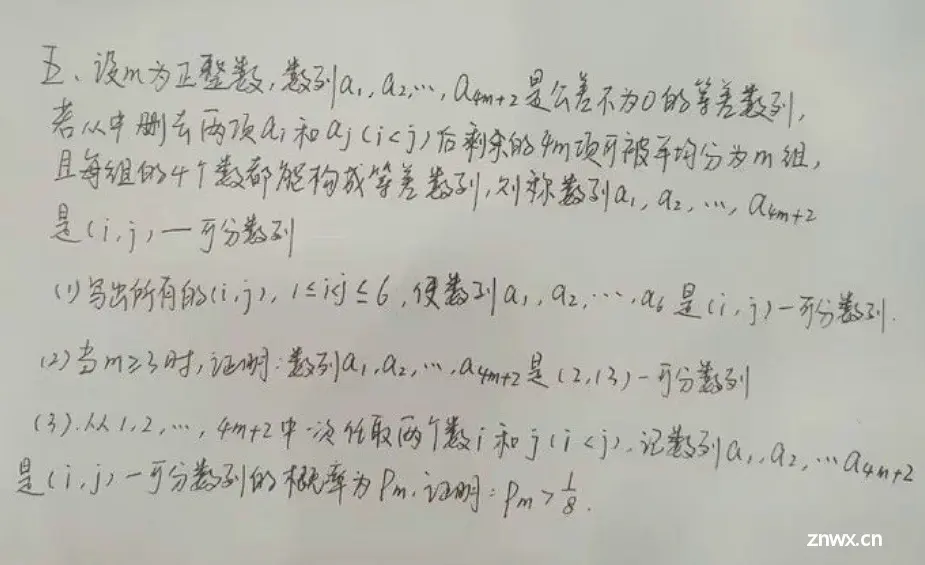 五、设m为正整数,数列a₁,a₂,…,a₄ₘ₊₂是公差不为0的等差数列,
若从中删去两项aᵢ和aⱼ(i<j)后剩余的4m项可被平均分为m组,
且每组的4个数都能构成等差数列,则称数列a₁,a₂,…,a₄ₘ₊₂
是(i,j)—可分数列
(1)写出所有的(i,j),1≤i<j≤6,使数列a₁,a₂,…,a₆是(i,j)-可分数列.
(2)当m≥3时,证明:数列a₁,a₂,…,a₄ₘ₊₂是(2,13)-可分数列
(3).从1,2,…,4m+2中一次任取两个数i和j(i<j).记数列a₁,a₂,…a₄ₘ₊₂
是(i,j)-可分数列的概率为Pₘ.证明:Pₘ>1/8.
znwx.cn